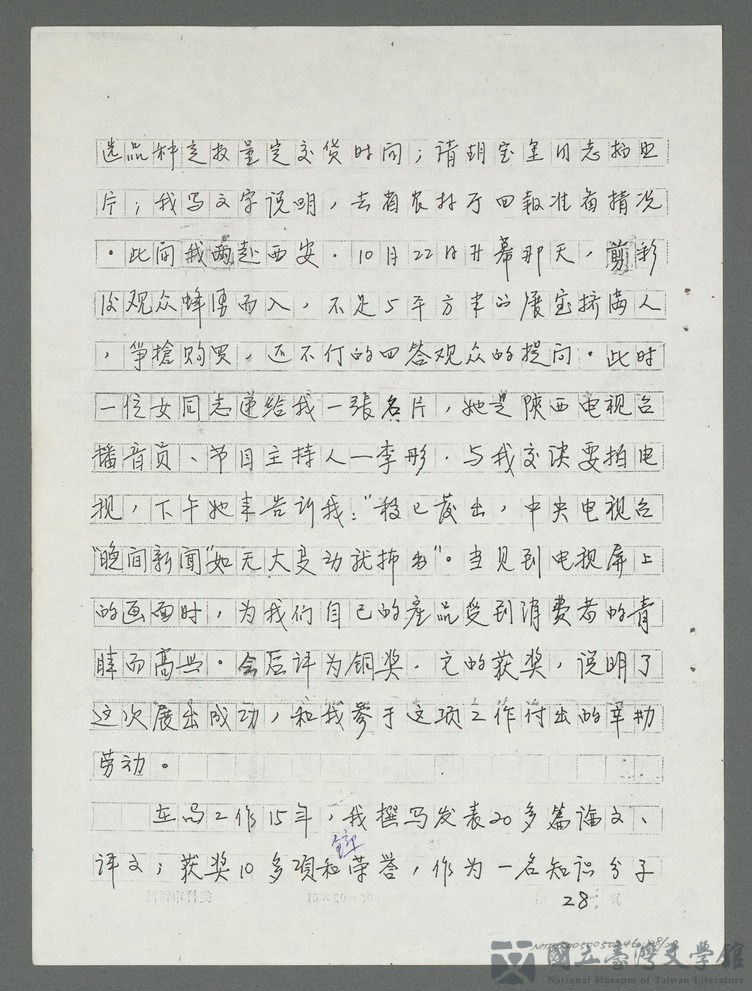 选品种定数量定交货时间；请胡宝玺同志拍照
片；我写文字说明，去省农村厅回报准备情况
。此间我两赴西安。10月22日开幕那天，剪彩
后观众蜂涌而入，不足5平方米的展室挤满人
，争抢购买，还不停的回答观众的提问。此时
一位女同志递给我一张名片，她是陕西电视台
播音员、节目主持人一李彤．与我交谈要拍电
视，下午她来告诉我："稿已发出，中央电视台
"晚间新闻"如无大变动就播出"。当见到电视屏上
的画面时，为我们自己的產品受到消费者的青
睐而高兴。会后评为铜奖．它的获奖，说明了
这次展出成功，和我参于这项工作付出的辛勤
劳动。
在局工作15年，我撰写发表20多篇论文、
译文；获奖10多项和荣誉，作为一名知识分子
28
國立臺灣文學館
National Museum of Taiwan Literature